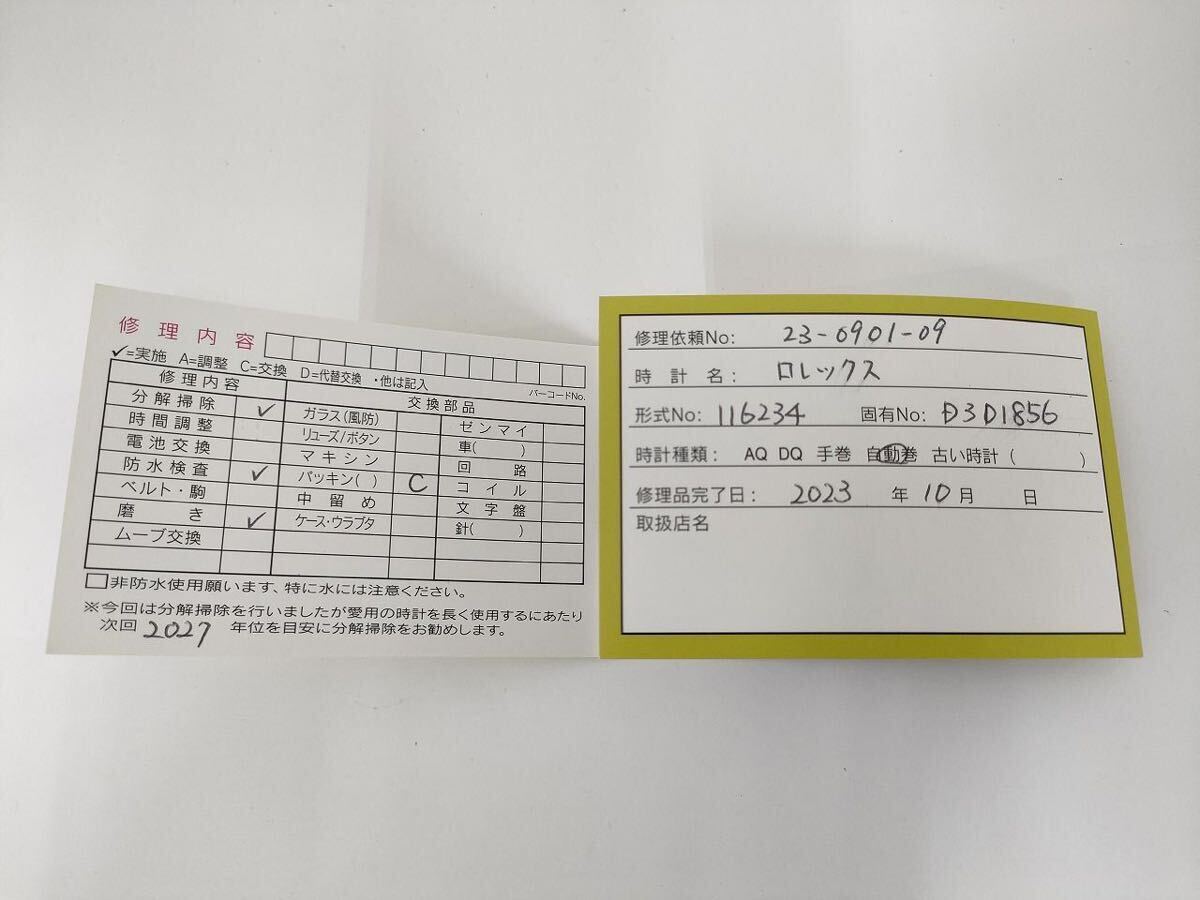 修理内容
バーコードNo.
✓=実施 A=調整 C=交換 D=代替交換 ・他は記入
修理内容 交換部品
分解掃除 ✓ ガラス(風防) ゼンマイ
時間調整 リューズ/ボタン 車( )
電池交換 マキシン 回路
防水検査 ✓ パッキン( ) C コイル
ベルト・駒 中留め 文字盤
磨き ✓ ケース・ウラブタ 針( )
ムーブ交換
□非防水使用願います、特に水には注意ください。
※今回は分解掃除を行いましたが愛用の時計を長く使用するにあたり
次回 2027 年位を目安に分解掃除をお勧めします。
修理依頼No: 23-0901-09
時計名: ロレックス
形式No: 116234 固有No: D3D1856
時計種類: AQ DQ 手巻 自動巻 古い時計( )
修理品完了日: 2023 年 10 月 日
取扱店名